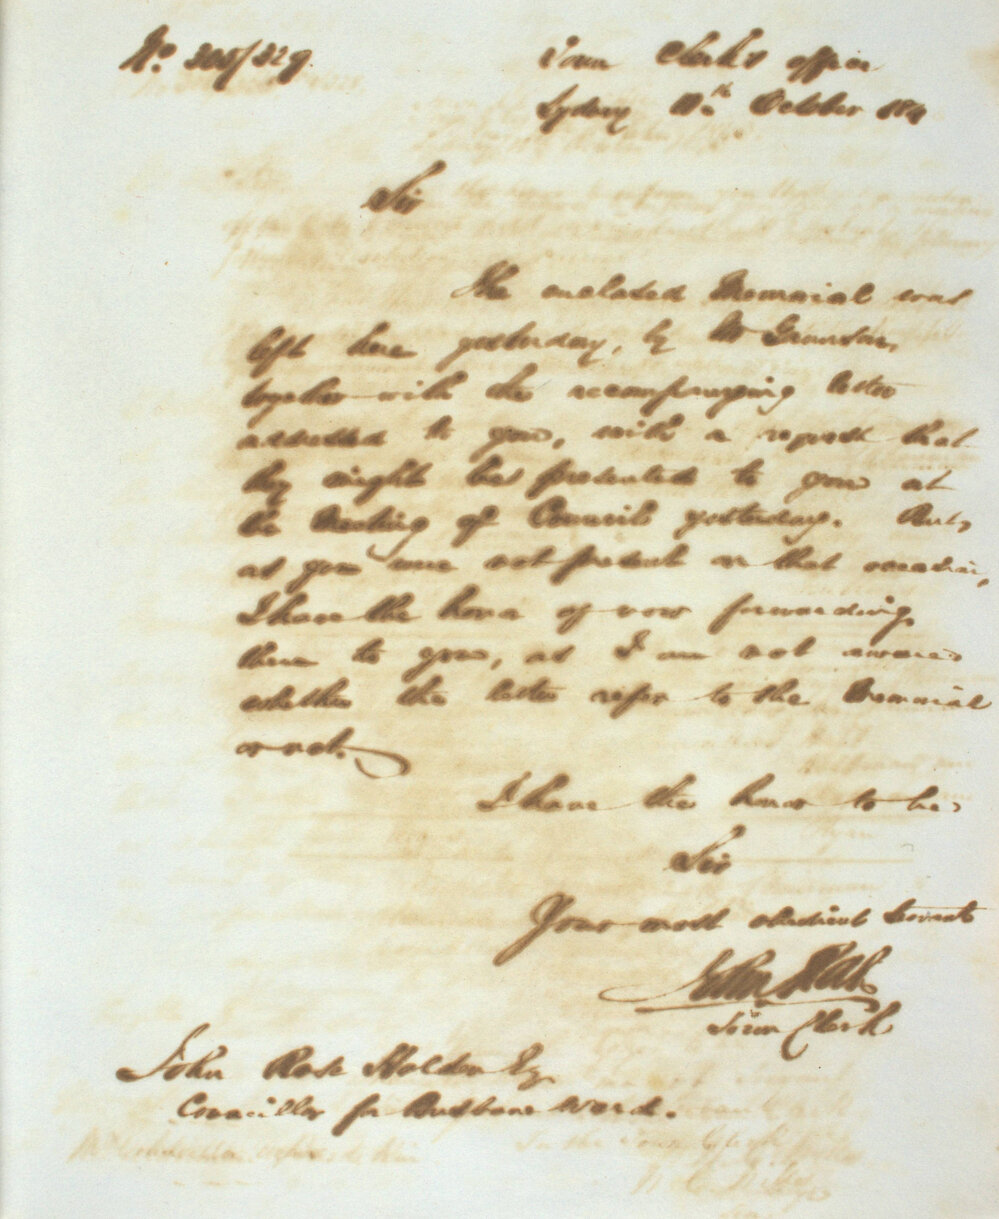 No. 305/329.
Town Clerk's Office
Sydney 10th October 184
Sir
The enclosed Memorial was
left here yesterday, by Mr
together with the accompanying letter
addressed to you, with a request that
they might be presented to you at
the Meeting of Council yesterday. But,
as you were not present on that occasion,
I have the honor of now forwarding
them to you, as I am not aware
whether the letter refer to the Memorial
or not.
I have the honor to be
Sir
Your most obedient Servant
John
Town Clerk
John Rose Holden Esq
Councillor for Brisbane Ward.